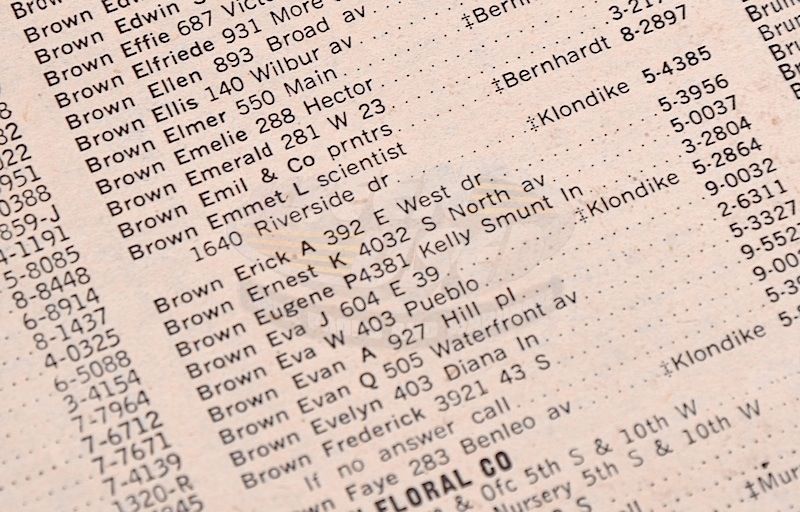 Brown Edwin
Brown Effie 687 Victo
Brown Elfriede 931 More
Brown Ellen 893 Broad av
Brown Ellis 140 Wilbur av
Brown Elmer 550 Main ‡Bern
Brown Emelie 288 Hector
Brown Emerald 281 W 23
Brown Emil & Co prntrs ‡Bernhardt 8-2897
Brown Emmet L scientist
1640 Riverside dr ‡Klondike 5-4385
Brown Erick A 392 E West dr 5-3956
Brown Ernest K 4032 S North av 5-0037
Brown Eugene P4381 Kelly Smunt ln 3-2804
Brown Eva J 604 E 39 ‡Klondike 5-2864
Brown Eva W 403 Pueblo 9-0032
Brown Evan A 927 Hill pl 2-6311
Brown Evan Q 505 Waterfront av 5-3327
Brown Evelyn 403 Diana ln 9-552
Brown Frederick 3921 43 S 9-00
If no answer call
Brown Faye 283 Benleo av ‡Klondike 5-
FLORAL CO
& Ofc 5th S & 10th W
Nursery 5th S & 10th W
‡Mur
0388
859-J
4-1191
5-8085
8-8448
6-8914
8-1437
4-0325
6-5088
3-4154
7-7964
7-6712
7-7671
7-4139
1320-R